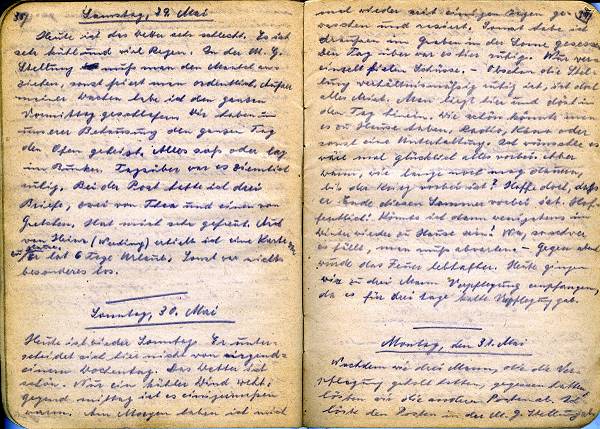 Samstag, 29. Mai
Heute ist das Wetter sehr schlecht. Es ist
sehr kühl und viel Regen. In der M. G.
Stellung muß man den Mantel an-
ziehen, sonst friert man ordentlich. Außer
meiner Wachen habe ich den ganzen
Vormittag geschlafen. Wir haben in
unserer Behausung den ganzen Tag
den Ofen geheizt. Alles saß oder lag
im Bunker. Tagsüber war es ziemlich
ruhig. Bei der Post hatte ich drei
Briefe, zwei von Thea und einen von
Gretchen. Hat mich sehr gefreut. Auch
von Heinz erhielt ich eine Karte
Er hat 6 Tage Urlaub. Sonst war nichts
besonderes los.
Sonntag, 30. Mai
Heute ist wieder Sonntag. Er unter-
scheidet sich hier nicht von irgend-
einem Wochentag. Das Wetter ist
schön. Nur ein kühler Wind weht,
gegend mittag ist es einigermaßen
warm. Am Morgen haben ich mich
mal wieder seit einigen Tagen ge-
waschen und rasiert. Sonst habe ich
draußen im Graben in der Sonne gesessen
Den Tag über war es hier ruhig. Nur ver-
einzelt fielen Schüsse. - Obschon die Stel-
lung verhältnismäßig ruhig ist, ist doch
alles Mist. Man liegt hier und döst in
den Tag hinein. Wie schön könnte man
es zu Hause haben, Radio, Kino oder
sonst eine Unterhaltung. Ich wünschte es
wäre mal glücklich alles vorbei. Aber
wann, wie lange noch mag dauern,
bis der Krieg vorbei ist? Hoffe doch, daß
er Ende diesen Sommer vorbei ist. Hof-
fentlich! Könnte ich dann wenigstens im
Winter wieder zu Hause sein! Na, so schwer
es fällt, man muß abwarten. - Gegen abend
wurde das Feuer lebhafter. Heute gingen
wir zu drei Mann Verpflegung empfangen,
da es für drei Tage kalte Verpflegung gab.
Montag, den 31. Mai
Nachdem wir drei Mann, die die Ver-
pflegung geholt hatten, gegessen hatten
lösten wir die anderen Posten ab. Ich
löste den Posten in der M. G. Stellung ab.